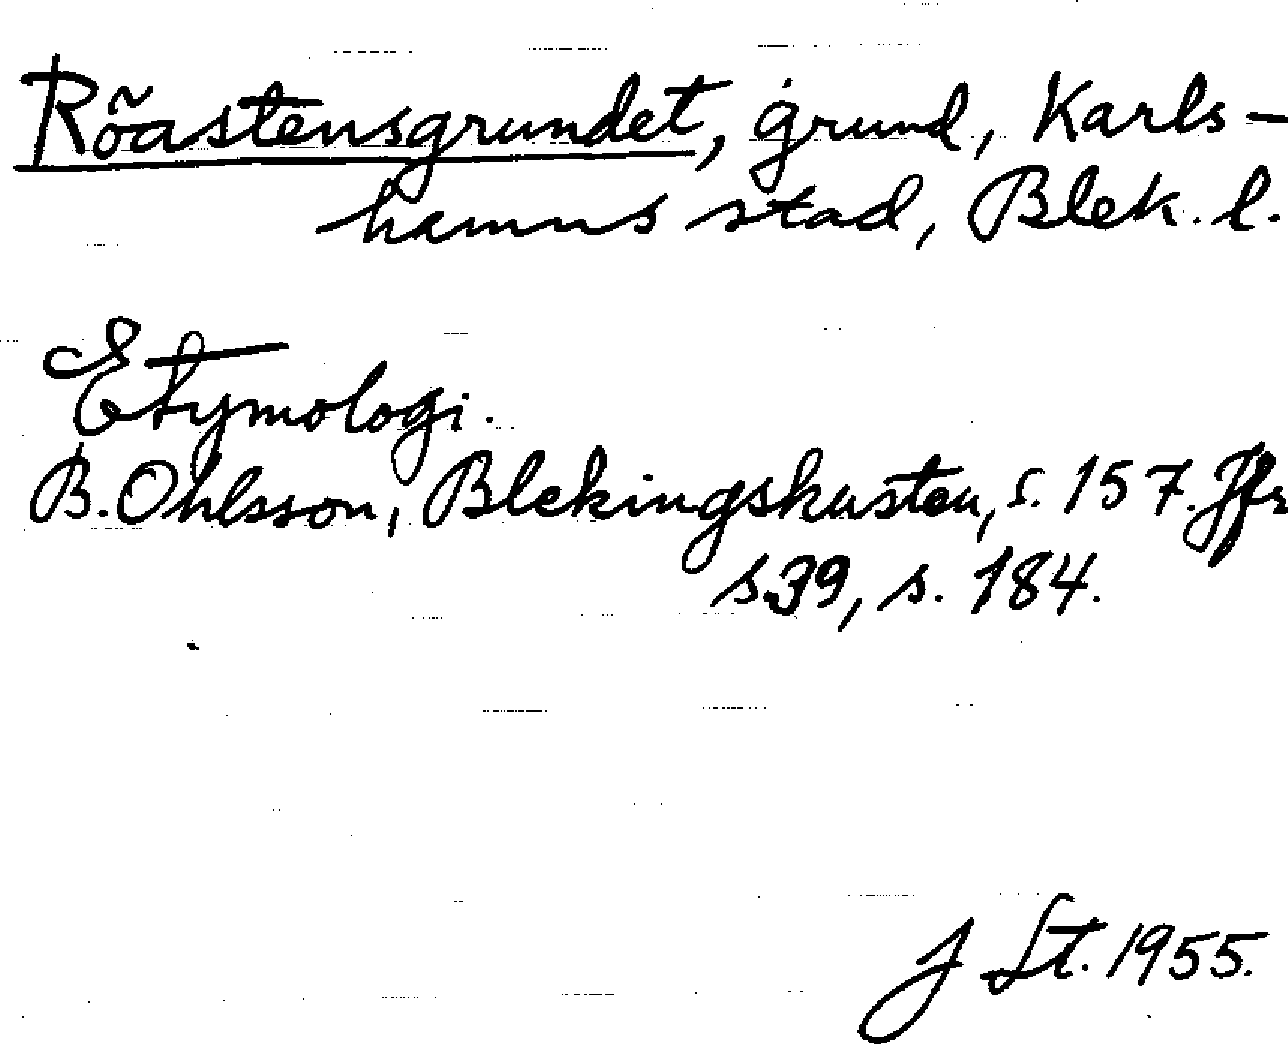 Röastensgrundet, grund, Karls-
hamns stad, Blek. l.
Etymologi.
B. Ohlsson, Blekingskusten, s. 157. Jfr
s. 39, s. 184.
J St. 1955.